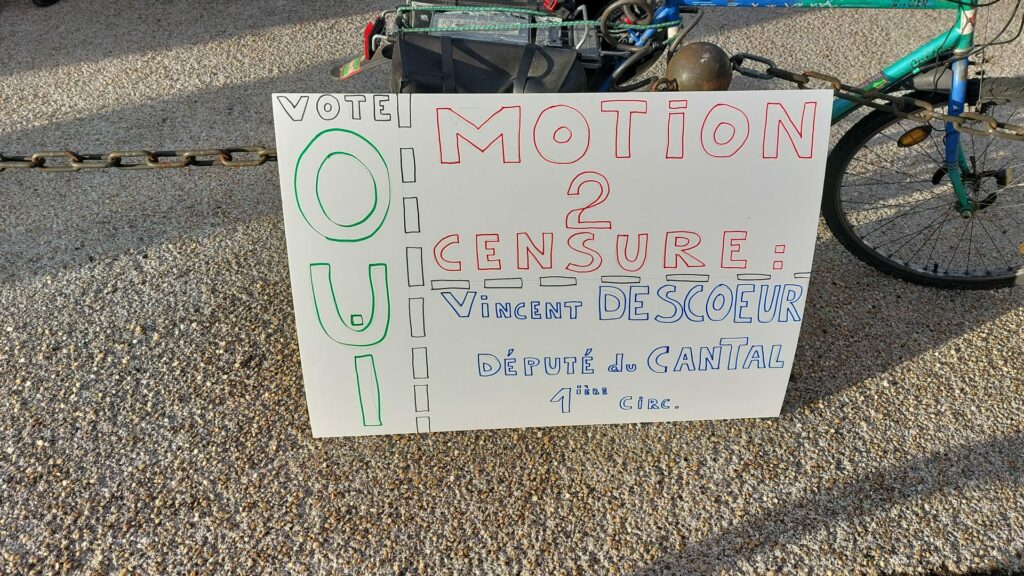 VOTE
OUi
MOTiON
2
CENSURE :
ViNCENT DESCOEUR
DÉPUTÉ du CANTAL
1ière CIRC.